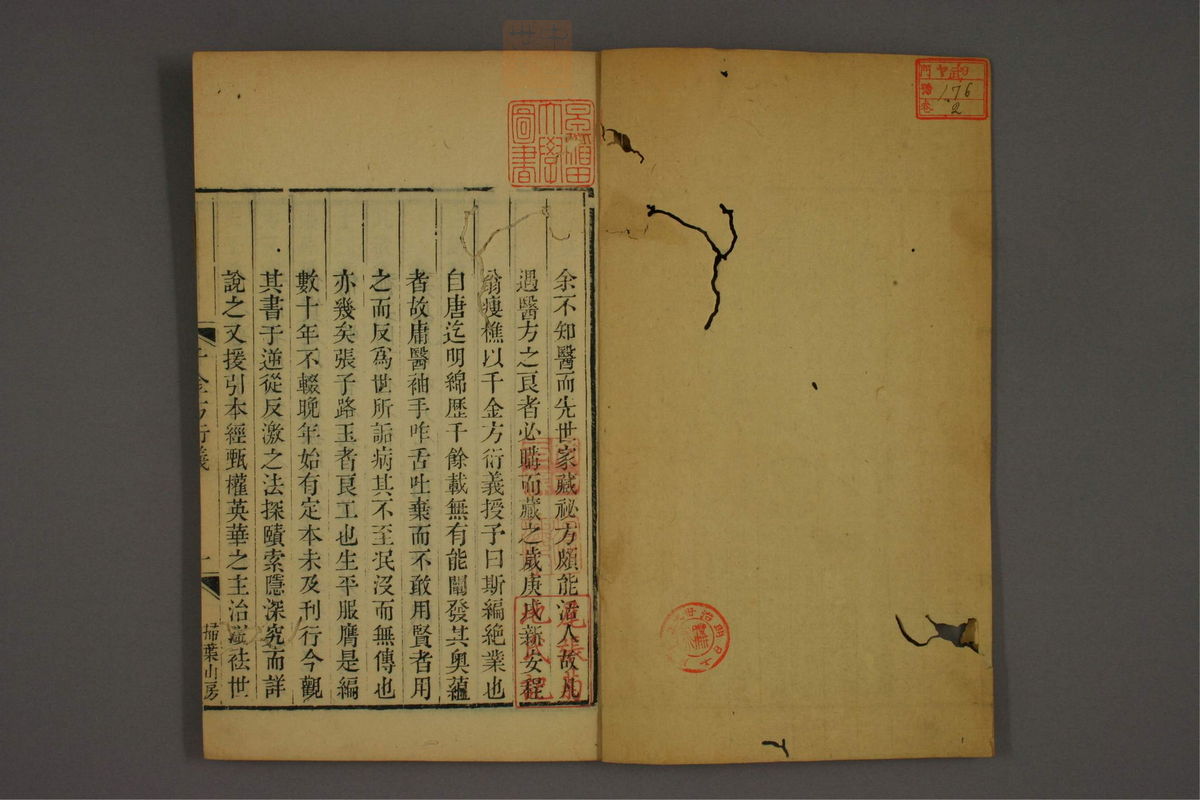 ヤ 09
176
2
早稲田
大學
圖書
余不知醫而先世家藏祕方頗能活人故凡
遇醫方之良者必購而藏之歲庚戌新安程
翁瘦樵以千金方衍義授予曰斯編絶業也
自唐迄明綿歷千餘載無有能闡發其奥蘊
者故庸醫袖手咋舌吐棄而不敢用賢者用
之而反爲世所詬病其不至泯没而無傳也
亦幾矣張子路玉者良工也生平服膺是編
數十年不輟晚年始有定本未及刊行今觀
其書于逆從反激之法探賾索隱深究而詳
說之又援引本經甄權英華之主治瀹袪世
千金方衍義
一
掃葉山房